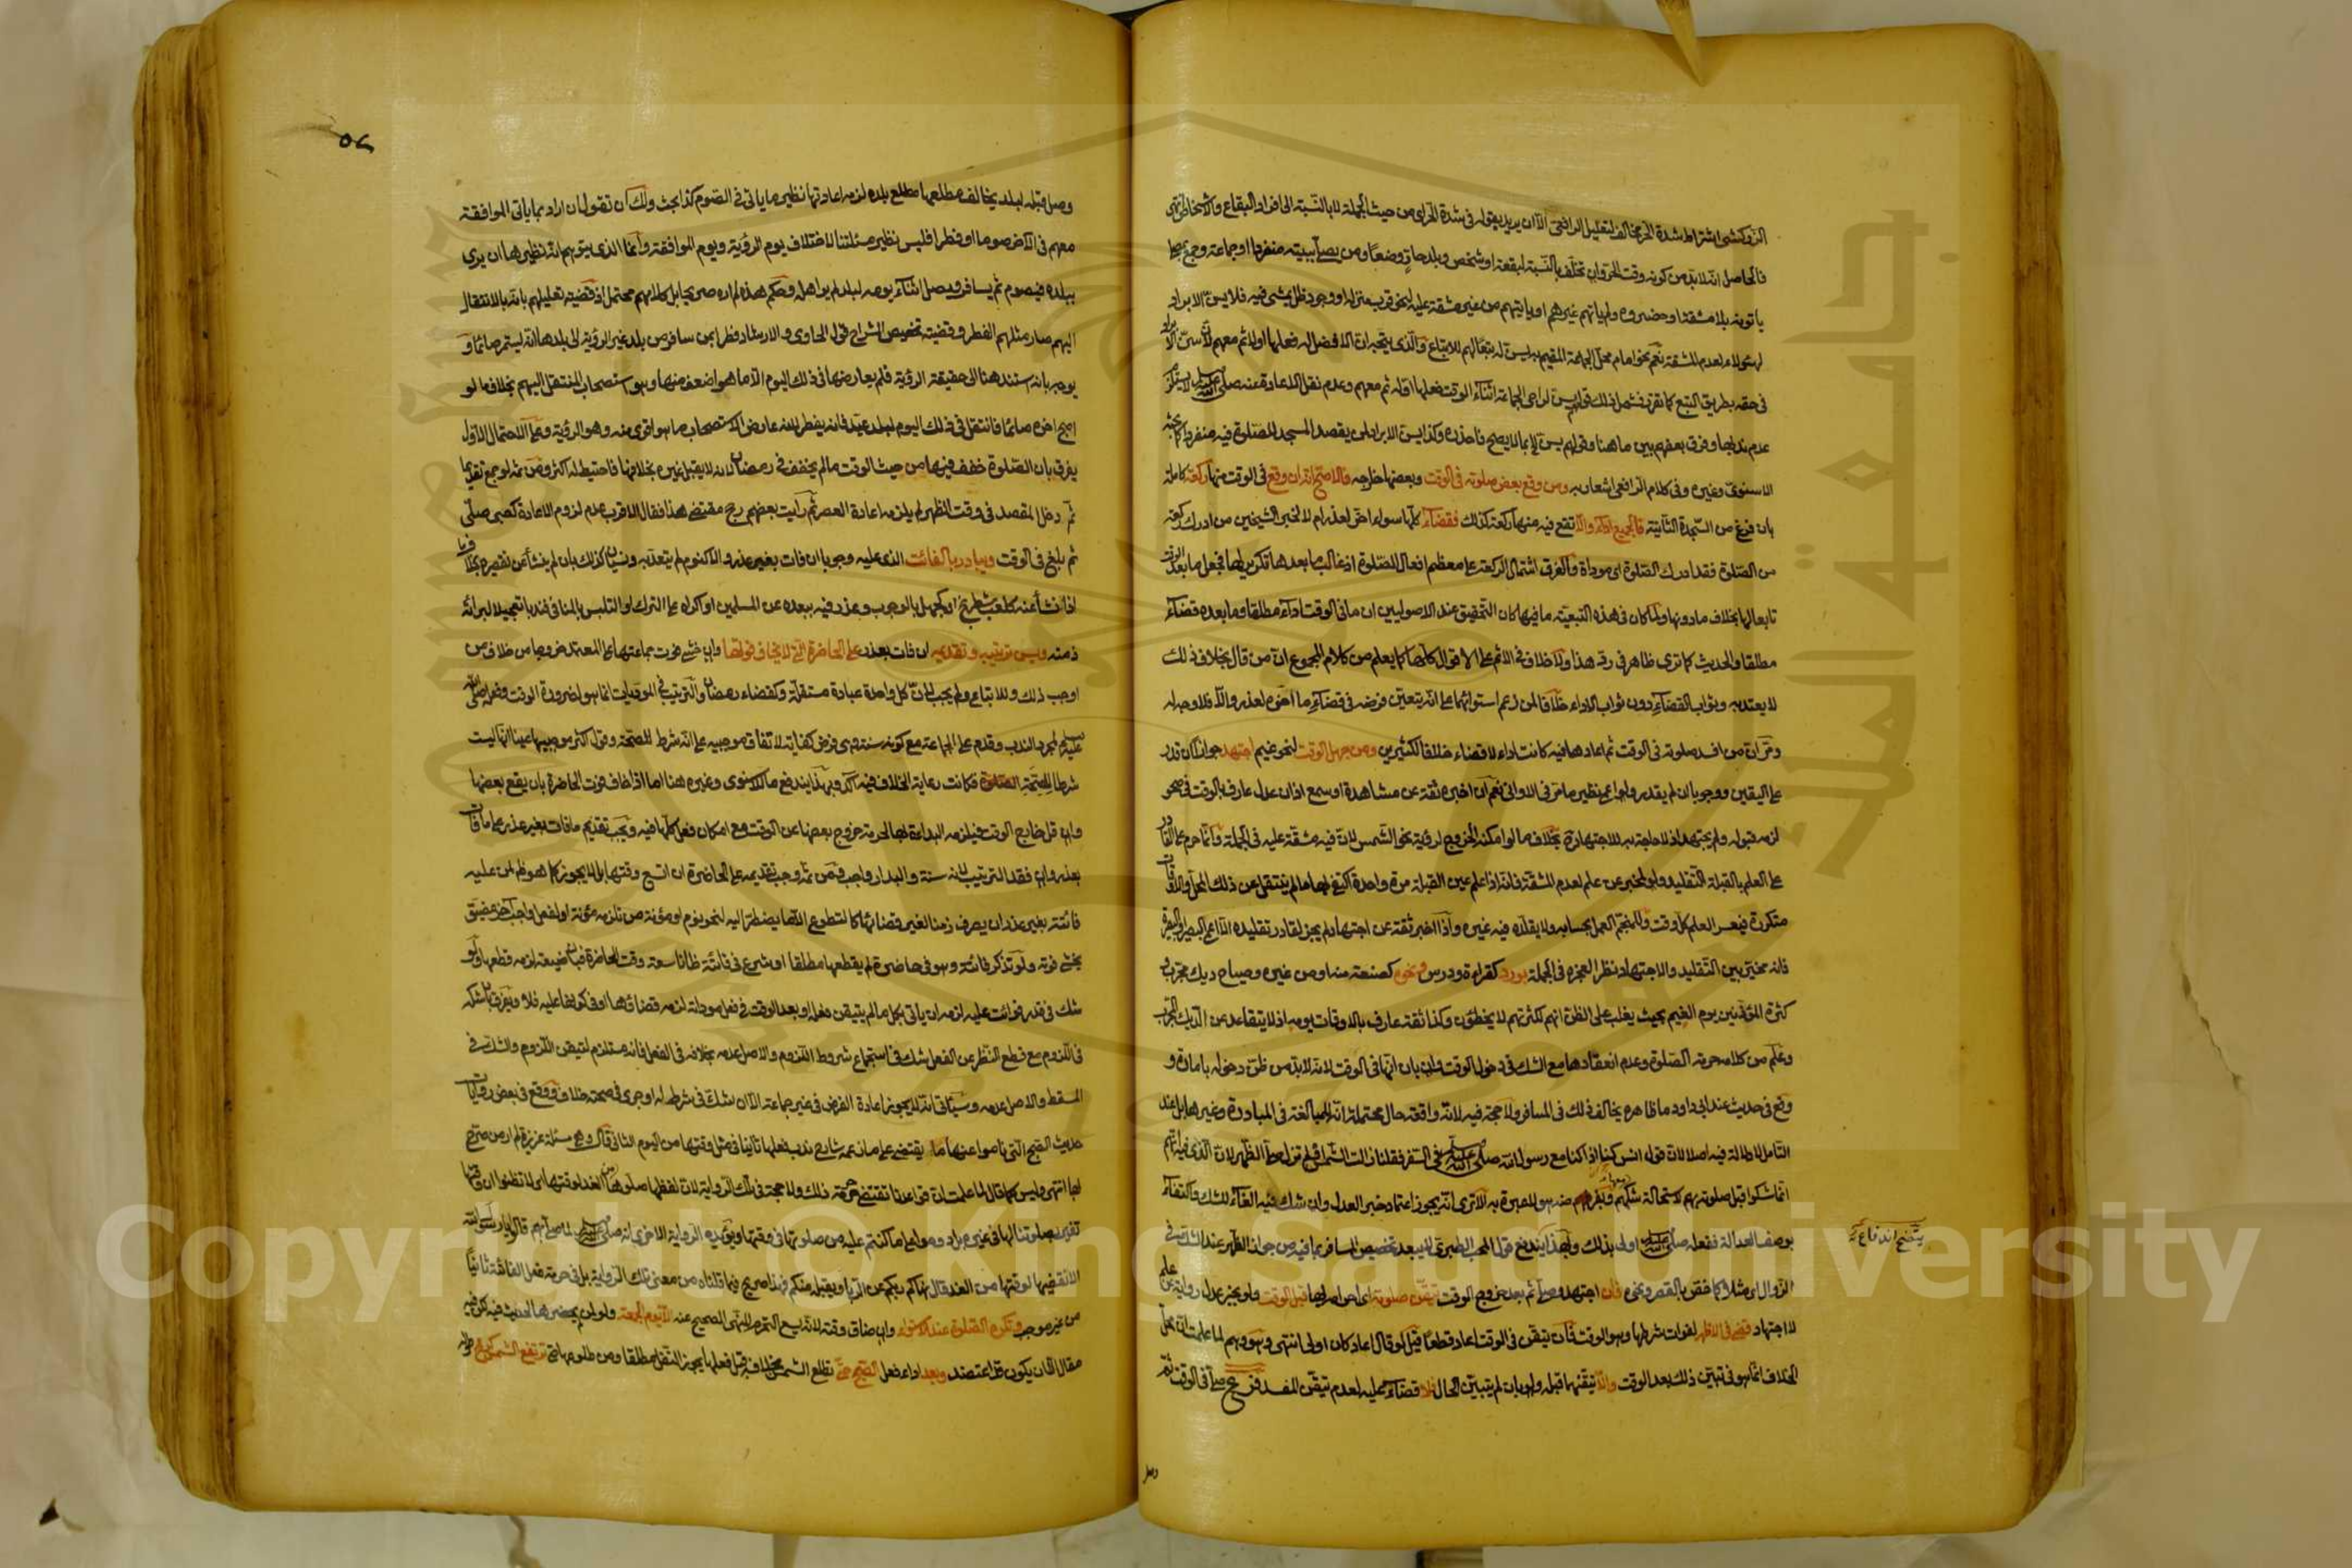 الزركشي اشتراط شدة الحر مخالف لتعليل الرافعي الا ان يريد بقوله في شدة الحر اي من حيث الجملة لا بالنسبة الى افراد البقاع والاشخاص انتهى
فالحاصل انه لا بد من كونه وقت الحر وان تخلف بالنسبة لبقعة او شخص وبلد حار وضعا ومن يصلي ببيته منفردا او جماعة وجمع بمصلى
ياتونه بلا مشقة او حضروه ولم ياتهم غيرهم او ياتيهم من غير مشقة عليه لنحو قرب منزله او وجود ظل يمشي فيه فلا يسن الابراد
لهؤلاء لعدم المشقة نعم نحو امام محل الجماعة المقيم به يسن له تبعا لهم للاتباع والذي يتجه ان الافضل له فعلها اولا ثم معهم لانه يسن
في حقه بطريق التبع كما تقرر فشمل ذلك قولهم يسن لراجي الجماعة اثناء الوقت فعلها اوله ثم معهم وعدم نقل الاعادة عنه صلى الله عليه وسلم لا يستلزم
عدم ندبها وفرق بعضهم بين ما هنا وقولهم يسن الخ بما لا يصح فاحذره وكذا يسن الابراد لمن يقصد المسجد للصلوة فيه منفردا كما بحثه
الاسنوي وغيره وفي كلام الرافعي اشعار به ومن وقع بعض صلوته في الوقت وبعضها خارجه فالاصح انه ان وقع في الوقت منها ركعة كاملة
بان فرغ من السجدة الثانية فالجميع اداء والا تقع فيه منها ركعة كذلك فقضاء كلها سواء اخر لعذر ام لا لخبر الشيخين من ادرك ركعة
من الصلوة فقد ادرك الصلوة اي موداة والفرق اشتمال الركعة على معظم افعال الصلوة اذ غالب ما بعدها تكرير لها فجعل ما بعد الوقت
تابعا لها بخلاف ما دونها ولما كان في هذه التبعية ما فيها كان التحقيق عند الاصوليين ان ما في الوقت اداء مطلقا وما بعده قضاء
مطلقا والحديث كما ترى ظاهر في رد هذا ولا خلاف في الاثم على الاقوال كلها كما يعلم من كلام المجموع ان من قال بخلاف ذلك
لا يعتد به وثواب القضاء دون ثواب الاداء خلافا لمن زعم استوائهما على انه يتعين فرضه في قضاء ما اخره لعذر والا فلا وجه له
ومر ان من افسد صلوته في الوقت ثم اعادها فيه كانت اداء لا قضاء خلافا لكثيرين ومن جهل الوقت لنحو غيم اجتهد جوازا ان قدر
على اليقين ووجوبا ان لم يقدر ولو اعمى نظير ما مر في الاواني نعم ان اخبره ثقة عن مشاهدة او سمع اذان عدل عارف بالوقت في صحو
لزمه قبوله ولم يجتهد اذ لا حاجة به للاجتهاد بخلاف ما لو امكنه الخروج لرؤية نحو الشمس لان فيه مشقة عليه في الجملة وانما حرم على القادر
على العلم بالقبلة التقليد ولو لمخبر عن علم لعدم المشقة فانه اذا علم عين القبلة مرة واحدة اكتفى بها ما لم ينتقل عن ذلك المحل والاوقات
متكررة فيعسر العلم كل وقت وللمنجم العمل بحسابه ولا يقلده فيه غيره واذا اخبر ثقة عن اجتهاد لم يجز لقادر تقليده الا اعمى البصر او البصيرة
فانه مخير بين التقليد والاجتهاد نظرا لعجزه في الجملة بورد كقراءة ودرس ونحوه كصنعة منه او من غيره وصياح ديك مجرب
كثرة المؤذنين يوم الغيم بحيث يغلب على الظن انهم لكثرتهم لا يخطئون وكذا ثقة عارف بالاوقات يومه اذ لا يتقاعد عن الديك المجرب
وعلم من كلامه حرمة الصلوة وعدم انعقادها مع الشك في دخول الوقت وان بان انها في الوقت لانه لا بد من ظن دخوله بامارة و
وقع في حديث عند ابي داود ما ظاهره يخالف ذلك في المسافر ولا حجة فيه لانه واقعة حال محتملة انه للمبالغة في المبادرة وغيرها بل عند
التامل لا دلالة فيه اصلا لان قول انس كنا اذا كنا مع رسول الله صلى الله عليه وسلم في السفر فقلنا زالت الشمس او لم تزل صلى الظهر لان الذي فيه انهم
انما شكوا قبل صلوته بهم لاستحالة شكهم منه هو للعبرة به الا ترى انه يجوز اعتماد خبر العدل وان شك فيه الغاء للشك واكتفاء
بوصف العدالة ففعله صلى الله عليه وسلم اولى بذلك وبهذا يندفع قول المحب الطبري لا يبعد تخصيص المسافر بما فيه من جواز الظهر عند الشك في
الزوال اي مثلا كما خفف بالقصر ونحوه فان اجتهد وصلى ثم بعد خروج الوقت تيقن صلوته اي احرامه بها قبل الوقت ولو بخبر عدل رواية عن علم
لا اجتهاد قضى في الاظهر لفوات شرطها وهو الوقت فان تيقن في الوقت اعاد قطعا قيل لو قال اعاد كان اولى انتهى وهو وهم لما علمت ان محل
الخلاف انما هو في تبين ذلك بعد الوقت والا تيقنها قبله ولو بان لم يتبين الحال فلا قضاء عليه لعدم تيقن المفسد فرع صلى في الوقت ثم
يتضح اندفاع
وصل
٥٢
وصل قبله لبلد يخالف مطلعها مطلع بلده لزمه اعادتها نظير ما ياتي في الصوم كذا بحث ولك ان تقول ان اراد بما ياتي الموافقة
معهم في الآخر صوما او فطرا فليس نظير مسئلتنا لاختلاف يوم الرؤية ويوم الموافقة وانما الذي يتوهم انه نظيرها ان يرى
ببلده فيصوم ثم يسافر ويصل اثناء يومه لبلد لم ير اهله وحكم هذه لم اره صريحا بل كلامهم محتمل اذ قضية تعليلهم بانه بالانتقال
اليهم صار مثلهم الفطر وقضية تخصيص الشراح قول الحاوي والارشاد فطرا بمن سافر من بلد غير الرؤية الى بلدها انه يستمر صائما و
يوجه بانه استند هنا الى حقيقة الرؤية فلم يعارضها في ذلك اليوم الا ما هو اضعف منها وهو استصحاب المنتقل اليهم بخلاف ما لو
اصبح اخره صائما فانتقل في ذلك اليوم لبلد عيد فانه يفطر لانه عارض الاستصحاب ما هو اقوى منه وهو الرؤية وعلى الاحتمال الاول
يفرق بان الصلوة خفف فيها من حيث الوقت ما لم يخفف في رمضان لانه لا يقبل غيره بخلافها فاحتيط له اكثر ومن ثم لو جمع تقديما
ثم دخل المقصد في وقت الظهر لم يلزمه اعادة العصر ثم رايت بعضهم رجح مقتضى هذا فقال الاقرب عدم لزوم الاعادة كصبي صلى
ثم بلغ في الوقت ويبادر بالفائت الذي عليه وجوبا ان فات بغير عذر والا كنوم لم يتعد به ونسيان كذلك بان لم ينشأ عن تقصير بخلاف
اذا نشأ عنه كلعب شطرنج او كجهل بالوجوب وعذر فيه ببعده عن المسلمين او اكراه على الترك او التلبس بالمنافي فندبا تعجيلا لبرائة
ذمته ويسن ترتيبه وتقديمه ان فات بعذر على الحاضرة التي لا يخاف فوتها وان خشي فوت جماعتها على المعتمد خروجا من خلاف من
اوجب ذلك وللاتباع ولم يجب لان كل واحدة عبادة مستقلة وكقضاء رمضان والترتيب في المؤديات انما هو لضرورة الوقت وفعله صلى الله
عليه وسلم لمجرد الندب وقدم على الجماعة مع كونه سنة وهي فرض كفاية لاتفاق موجبيه على انه شرط للصحة وقول اكثر موجبيها عينا انها ليست
شرطا للصحة فكانت رعاية الخلاف فيه آكد وبهذا يندفع ما للاسنوي وغيره هنا اما اذا خاف فوت الحاضرة بان يقع بعضها
وان قل خارج الوقت فيلزمه البداءة بها لحرمة خروج بعضها عن الوقت مع امكان فعل كلها فيه ويجب تقديم ما فات بغير عذر على ما فات
بعذر وان فقد الترتيب لانه سنة والبدار واجب ومن ثم وجب تقديمه على الحاضرة ان اتسع وقتها بل لا يجوز كما هو ظاهر لمن عليه
فائتة بغير عذر ان يصرف زمنا لغير قضائها كالتطوع الا ما يضطر اليه لنحو نوم او مؤنة من تلزمه مؤنته او لفعل واجب آخر مضيق
يخشى فوته ولو تذكر فائتة وهو في حاضرة لم يقطعها مطلقا او شرع في فائتة ظانا سعة وقت الحاضرة فبان ضيقه لزمه قطعها ولو
شك في قدر فوائت عليه لزمه ان ياتي بكل ما لم يتيقن فعله او بعد الوقت في فعل موداة لزمه قضاؤها او في كونها عليه فلا ويفرق بان شكه
في اللزوم مع قطع النظر عن الفعل شك في استجماع شروط اللزوم والاصل عدمه بخلافه في الفعل فانه مستلزم لتيقن اللزوم والشك في
المسقط والاصل عدمه وسياتي انه لا يجوز اعادة الفرض في غير جماعة الا ان شك في شرط له او جرى في صحته خلاف ووقع في بعض روايات
حديث الصبح التي ناموا عنها ما يقتضي على ما زعمه شارح ندب فعلها ثانيا في مثل وقتها من اليوم الثاني قال وهو مسئلة عزيزة لم ار من صرح
بها انتهى وليس كما قال لما علمت ان قواعدنا تقتضي حرمة ذلك ولا حجة في تلك الرواية لان لفظها صلوها الغد لوقتها اي لا تظنوا ان وقتها
تغير بصلوتنا لها في غيره بل داوموا على ما كنتم عليه من صلوتها في وقتها ويؤيده الرواية الاخرى انه صلى الله عليه وسلم لما صلى بهم قالوا يا رسول الله
الا نقضيها لوقتها من الغد فقال نهاكم ربكم عن الربا ويقبله منكم فهذا صريح فيما قلناه من معنى تلك الرواية بل في حرمة فعل الفائتة ثانيا
من غير موجب وتكره الصلوة عند الاستواء وان ضاق وقته لانه يسع التحرم للنهي الصحيح عنه الا يوم الجمعة ولو لمن لم يحضرها لحديث فيه لكن فيه
مقال الا ان يكون اعتضد وبعد اداء فعل الصبح حتى تطلع الشمس بخلافه قبل فعلها يجوز النفل مطلقا ومن طلوعها حتى ترتفع الشمس كرمح
Copyright © King Saud University